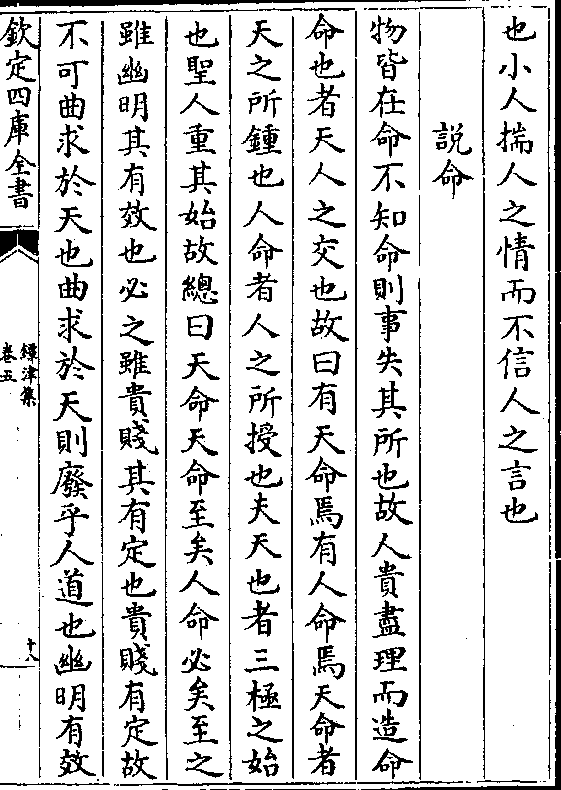 也小人揣人之情而不信人之言也
說命
物皆在命不知命則事失其所也故人貴盡理而造命
命也者天人之交也故曰有天命焉有人命焉天命者
天之所鍾也人命者人之所授也夫天也者三極之始
也聖人重其始故總曰天命天命至矣人命必矣至之
雖幽明其有效也必之雖貴賤其有定也貴賤有定故
不可曲求於天也曲求於天則廢乎人道也幽明有效
欽定四庫全書
鐔津集
卷五
十八